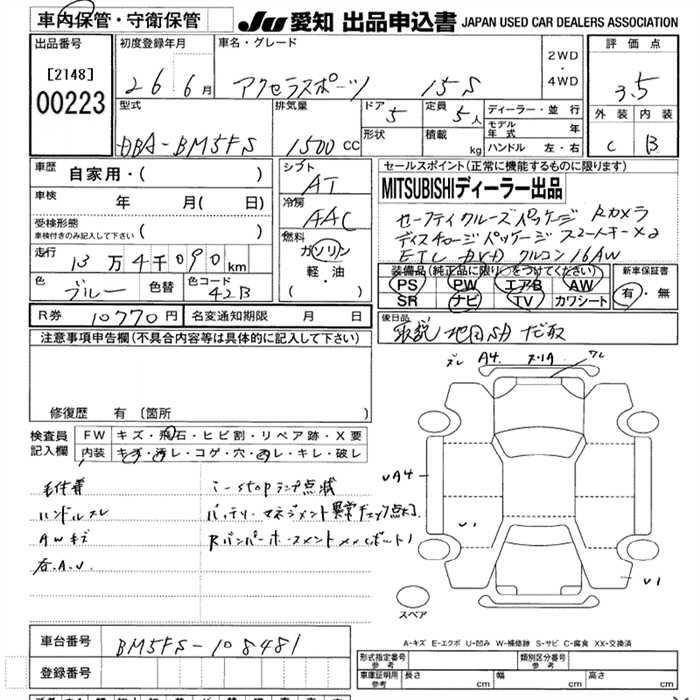 車内保管・守衛保管
JU 愛知 出品申込書 JAPAN USED CAR DEALERS ASSOCIATION
出品番号
[2148]
00223
初度登録年月
26 6月
車名・グレード
アクセラスポーツ 15S
2WD
・
4WD
評価点
3.5
外装 内装
C B
型式
DBA-BM5FS
排気量
1500 CC
ドア 5
定員 5人
形状
積載 kg
ディーラー・並行
モデル年式 年
ハンドル 左・右
車歴
自家用・( )
車検 年 月( 日)
受検形態
車検付きのみ記入して下さい ( )
走行 13万4千090km
色 ブルー 色替
色コード 42B
シフト
AT
冷房
AAC
燃料
ガソリン
軽・油
( )
R券 10770円
名変通知期限 月 日
セールスポイント(正常に機能するものに限ります)
MITSUBISHIディーラー出品
セーフティクルーズパッケージ Rカメラ
ディスチャージパッケージ スマートキー×2
ETC クルコン 16AW
装備品(純正品に限り○をつけてください)
PS PW エアB AW
SR ナビ TV カワシート
新車保証書
有・無
後日品
取説 地図SD
注意事項申告欄(不具合内容等は具体的に記入して下さい)
修復歴 有 [箇所 ]
検査員
記入欄
FW キズ・飛石・ヒビ割・リペア跡・X要
内装 キズ・汚レ・コゲ・穴・凹レ・キレ・破レ
ハンドルスレ
AWキズ
i-stopランプ点滅
バッテリーマネジメント異常チェック点灯
A4
UA4
U1
U1
スペア
A-キズ E-エクボ U-凹み W-補修跡 S-サビ C-腐食 XX-交換済
車台番号
BM5FS-108481
登録番号
形式指定番号 参考
類別区分番号 参考
車庫証明用 参考
長さ cm
幅 cm
高さ cm